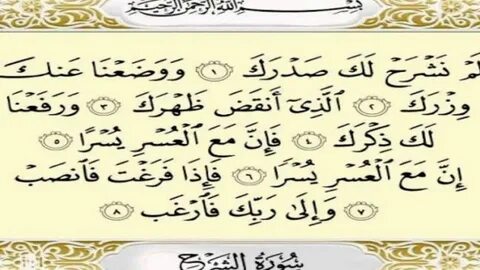 بِسْمِ ٱللَّهِ ٱلرَّحْمَٰنِ ٱلرَّحِيمِ
لَمْ نَشْرَحْ لَكَ صَدْرَكَ ١ وَوَضَعْنَا عَنكَ
وِزْرَكَ ٢ ٱلَّذِىٓ أَنقَضَ ظَهْرَكَ ٣ وَرَفَعْنَا
لَكَ ذِكْرَكَ ٤ فَإِنَّ مَعَ ٱلْعُسْرِ يُسْرًا ٥
إِنَّ مَعَ ٱلْعُسْرِ يُسْرًا ٦ فَإِذَا فَرَغْتَ فَٱنصَبْ
٧ وَإِلَىٰ رَبِّكَ فَٱرْغَب ٨
سُورَةُ الشَّرْحِ